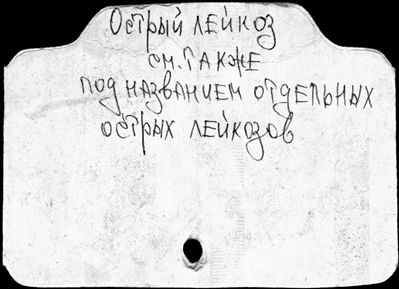 Острый лейкоз
см. также
под названием отдельных
острых лейкозов